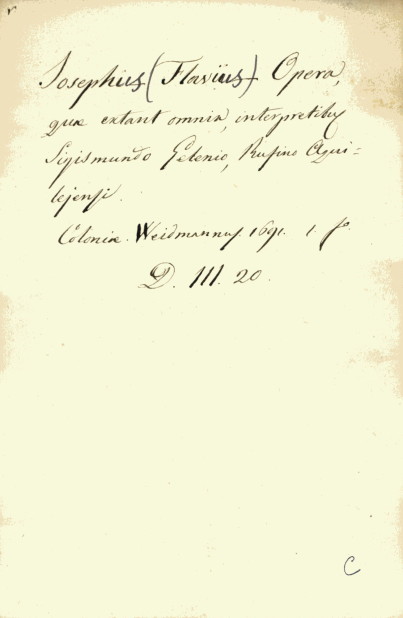 Josephus (Flavius) Opera,
quæ extant omnia, interpretibus
Sigismundo Gelenio, Rufino Aqui=
lejensi.
Coloniæ. Weidmannus. 1691. 1. fo.
D. III. 20.
C